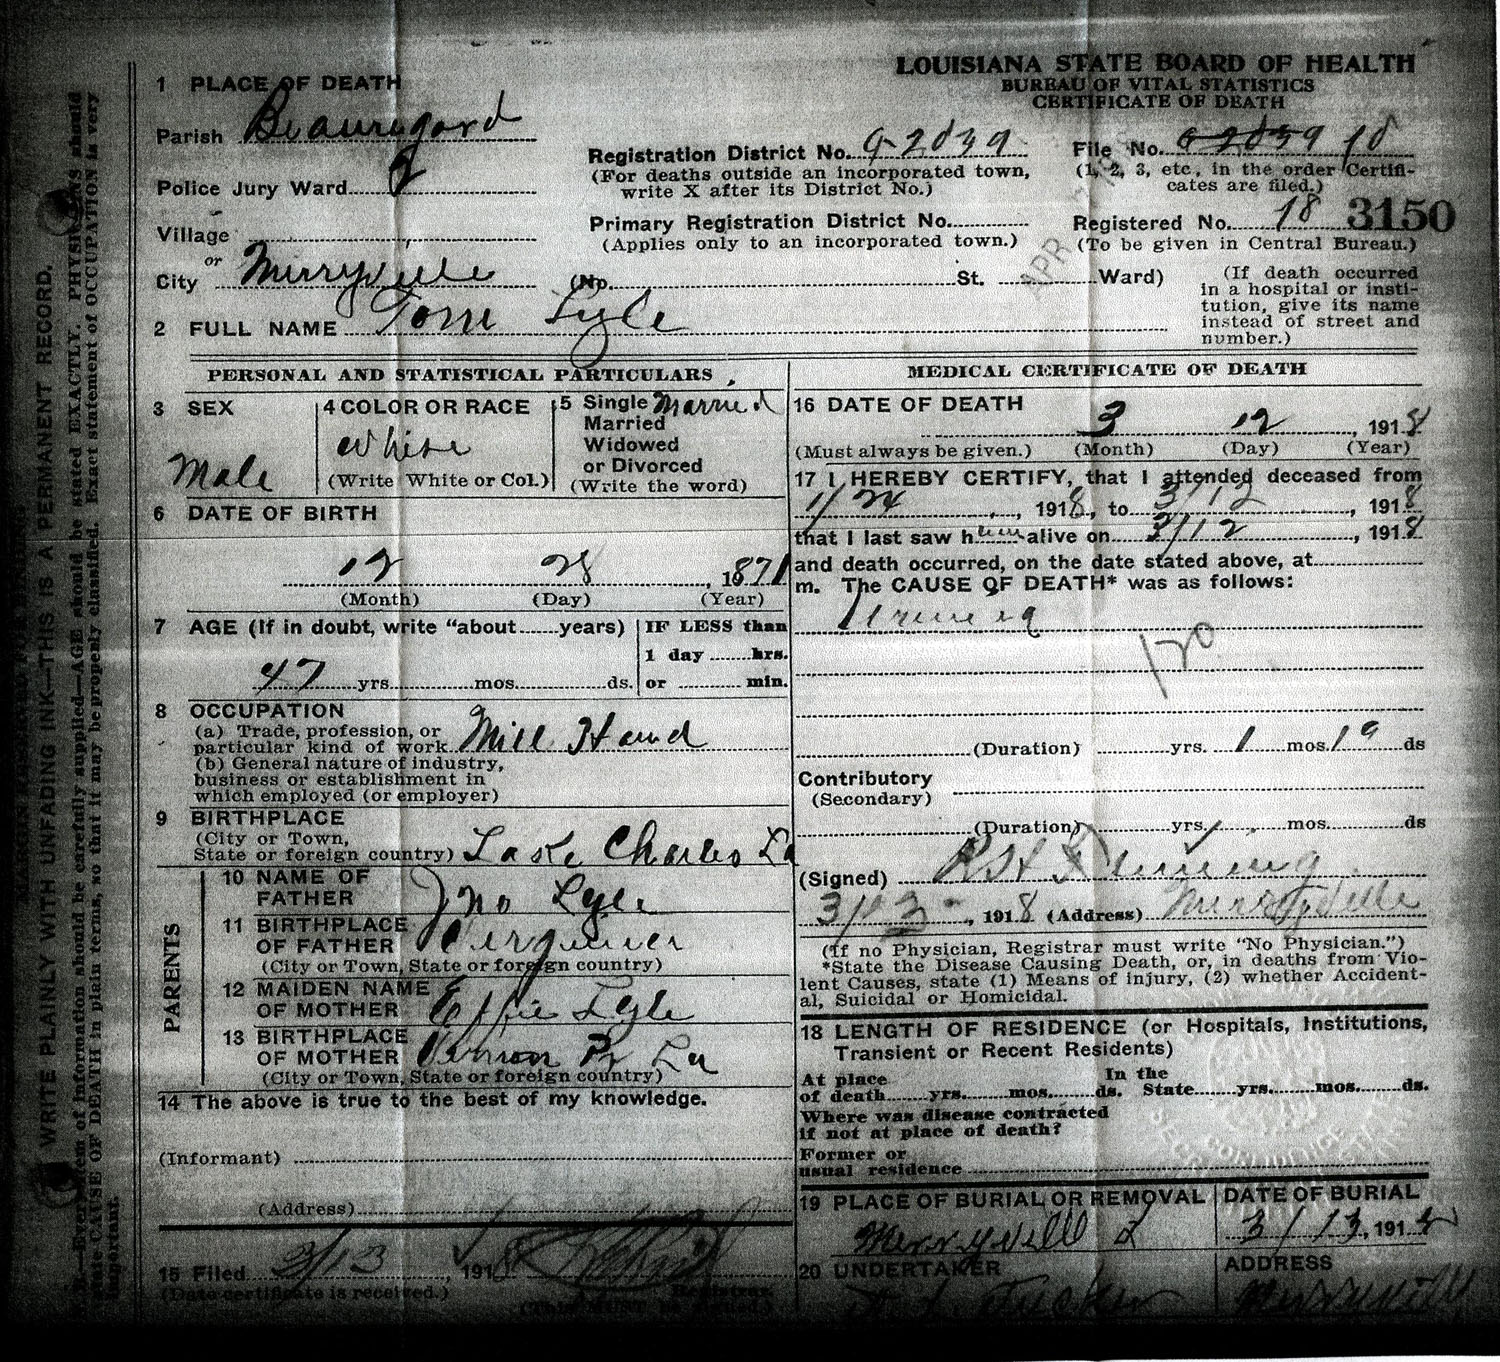 LOUISIANA STATE BOARD OF HEALTH
BUREAU OF VITAL STATISTICS
CERTIFICATE OF DEATH
1 PLACE OF DEATH
Parish Beauregard
Police Jury Ward
Village
or
City Merryville (No. St. Ward)
Registration District No.
(For deaths outside an incorporated town,
write X after its District No.)
Primary Registration District No.
(Applies only to an incorporated town.)
File No.
(1, 2, 3, etc., in the order Certifi-
cates are filed.)
Registered No. 18 3150
(To be given in Central Bureau.)
(If death occurred
in a hospital or insti-
tution, give its name
instead of street and
number.)
APR
2 FULL NAME Tom Lyle
PERSONAL AND STATISTICAL PARTICULARS
3 SEX
Male
4 COLOR OR RACE
White
(Write White or Col.)
5 Single Married
Married
Widowed
or Divorced
(Write the word)
6 DATE OF BIRTH
12 28, 1871
(Month) (Day) (Year)
7 AGE (If in doubt, write "about......years)
47 yrs. mos. ds.
IF LESS than
1 day hrs.
or min.
8 OCCUPATION
(a) Trade, profession, or
particular kind of work Mill Hand
(b) General nature of industry,
business or establishment in
which employed (or employer)
9 BIRTHPLACE
(City or Town,
State or foreign country) Lake Charles La
PARENTS
10 NAME OF
FATHER Jno Lyle
11 BIRTHPLACE
OF FATHER
(City or Town, State or foreign country)
12 MAIDEN NAME
OF MOTHER Effie Lyle
13 BIRTHPLACE
OF MOTHER Vernon Pr La
(City or Town, State or foreign country)
14 The above is true to the best of my knowledge.
(Informant)
(Address)
15 Filed 3/13, 1918
(Date certificate is received.)
Registrar
(This MUST be signed.)
MEDICAL CERTIFICATE OF DEATH
16 DATE OF DEATH
3 12, 1918
(Must always be given.) (Month) (Day) (Year)
17 I HEREBY CERTIFY, that I attended deceased from
1/24, 1918, to 3/12, 1918
that I last saw him alive on 3/12, 1918
and death occurred, on the date stated above, at
m. The CAUSE OF DEATH* was as follows:
Uremia
120
(Duration) yrs. 1 mos. 19 ds
Contributory
(Secondary)
(Duration) yrs. mos. ds
(Signed)
3/13, 1918 (Address) Merryville
(If no Physician, Registrar must write "No Physician.")
*State the Disease Causing Death, or, in deaths from Vio-
lent Causes, state (1) Means of injury, (2) whether Accident-
al, Suicidal or Homicidal.
18 LENGTH OF RESIDENCE (or Hospitals, Institutions,
Transient or Recent Residents)
At place
of death yrs. mos. ds.
In the
State yrs. mos. ds.
Where was disease contracted
if not at place of death?
Former or
usual residence
19 PLACE OF BURIAL OR REMOVAL
Merryville
DATE OF BURIAL
3/13, 191
20 UNDERTAKER
Tucker
ADDRESS
Merryville
WRITE PLAINLY WITH UNFADING INK—THIS IS A PERMANENT RECORD.
N. B.—Every item of information should be carefully supplied—AGE should be stated EXACTLY. PHYSICIANS should
state CAUSE OF DEATH in plain terms, so that it may be properly classified. Exact statement of OCCUPATION is very
important.